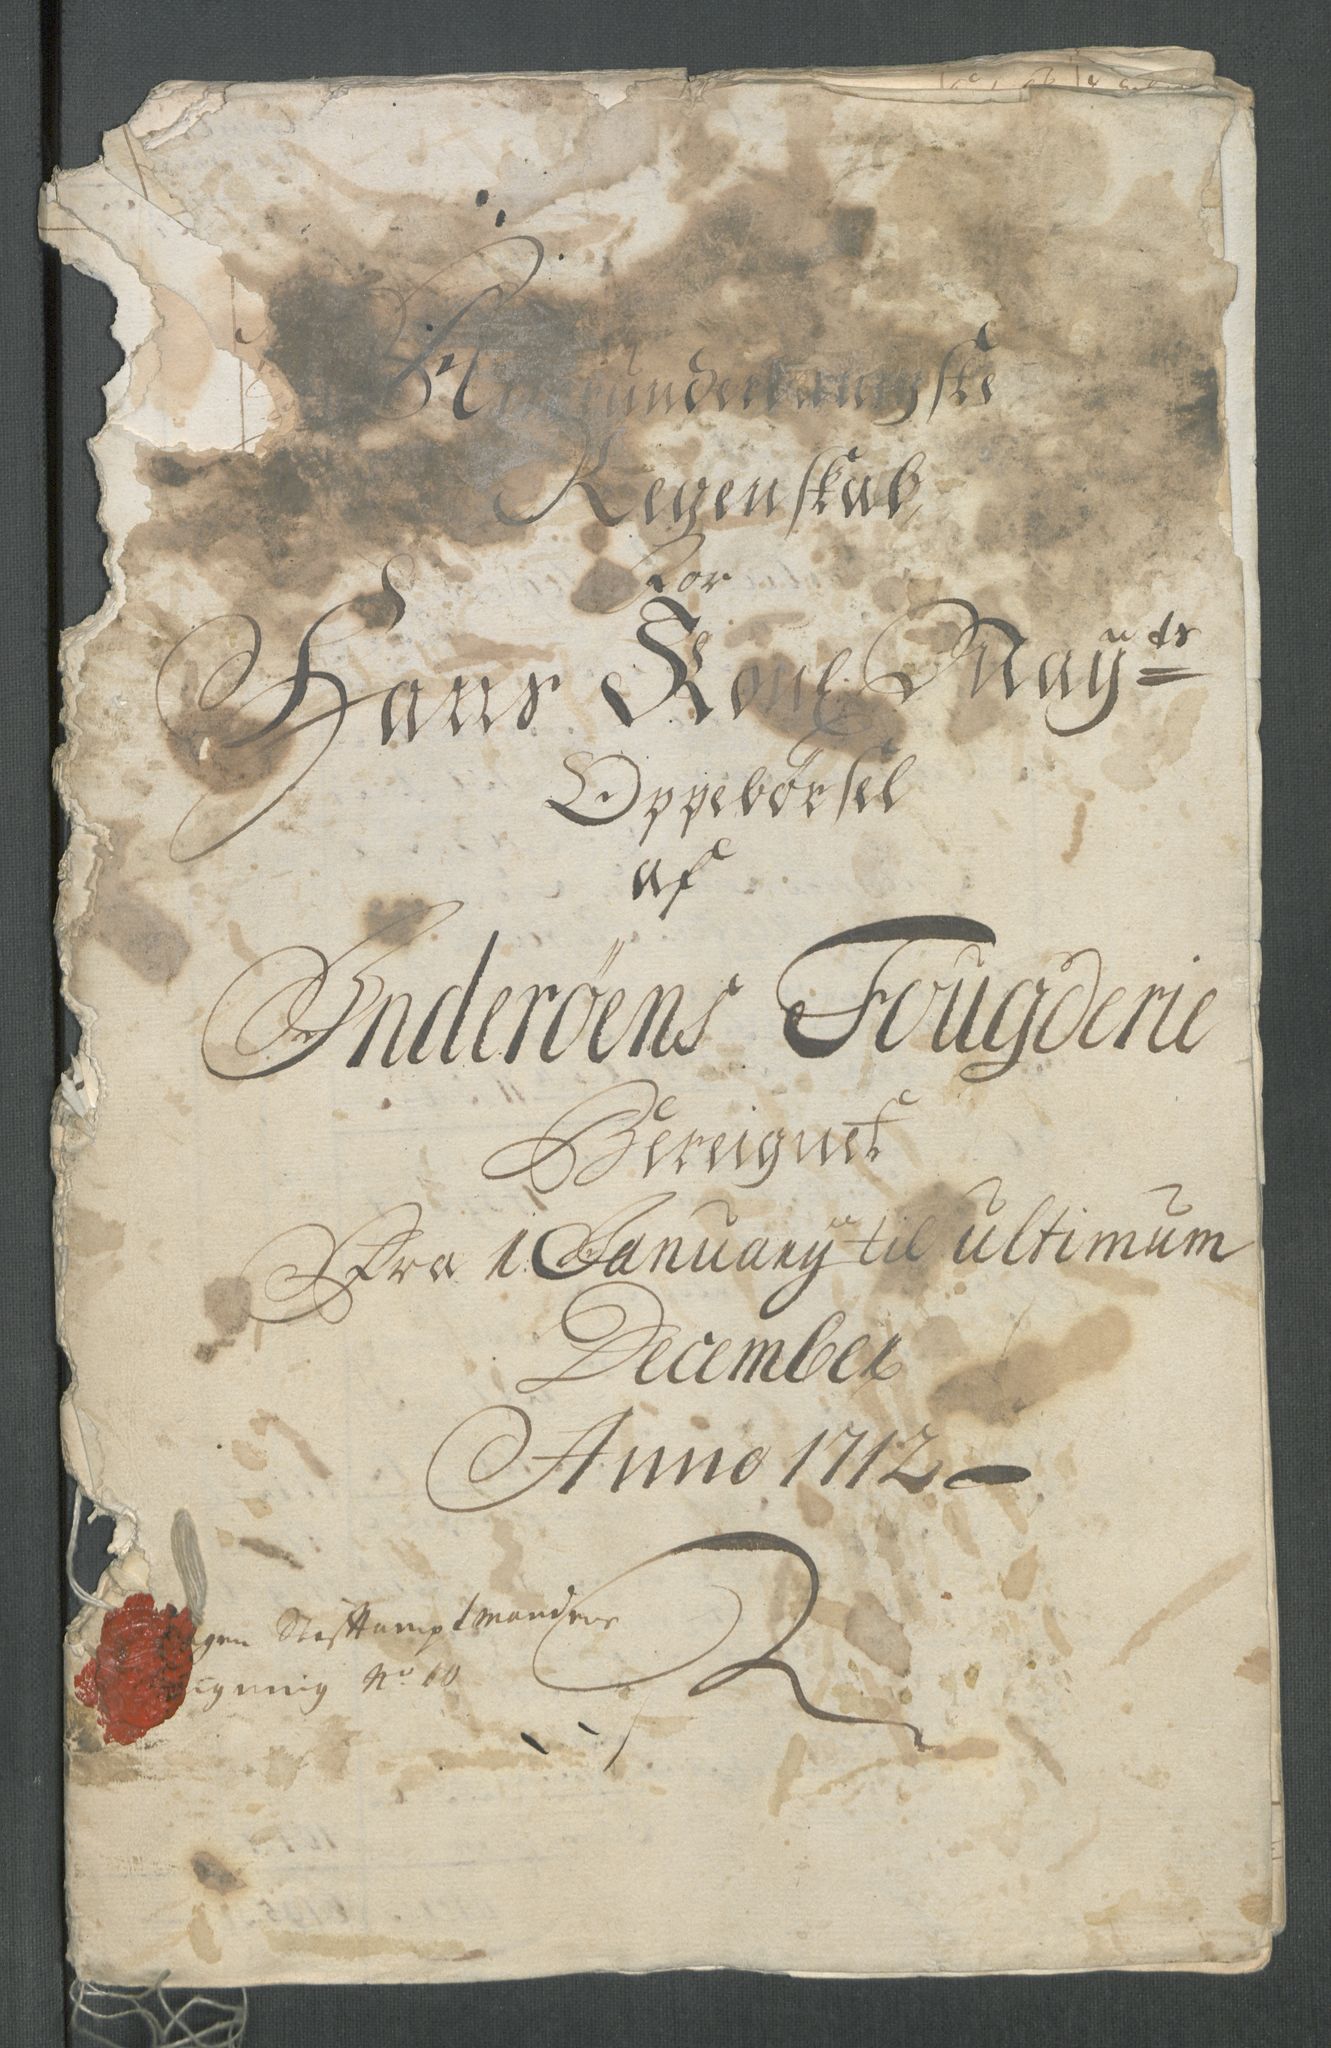 Allerunderdanigste
Regenskab
For
Hans Kongl. Mayᵗˢ
Oppebørsel
af
Inderøens Fougderie
Bereignet
Fra 1 January til ultimum
December
Anno 1712
Stifftamptmandens
No 60